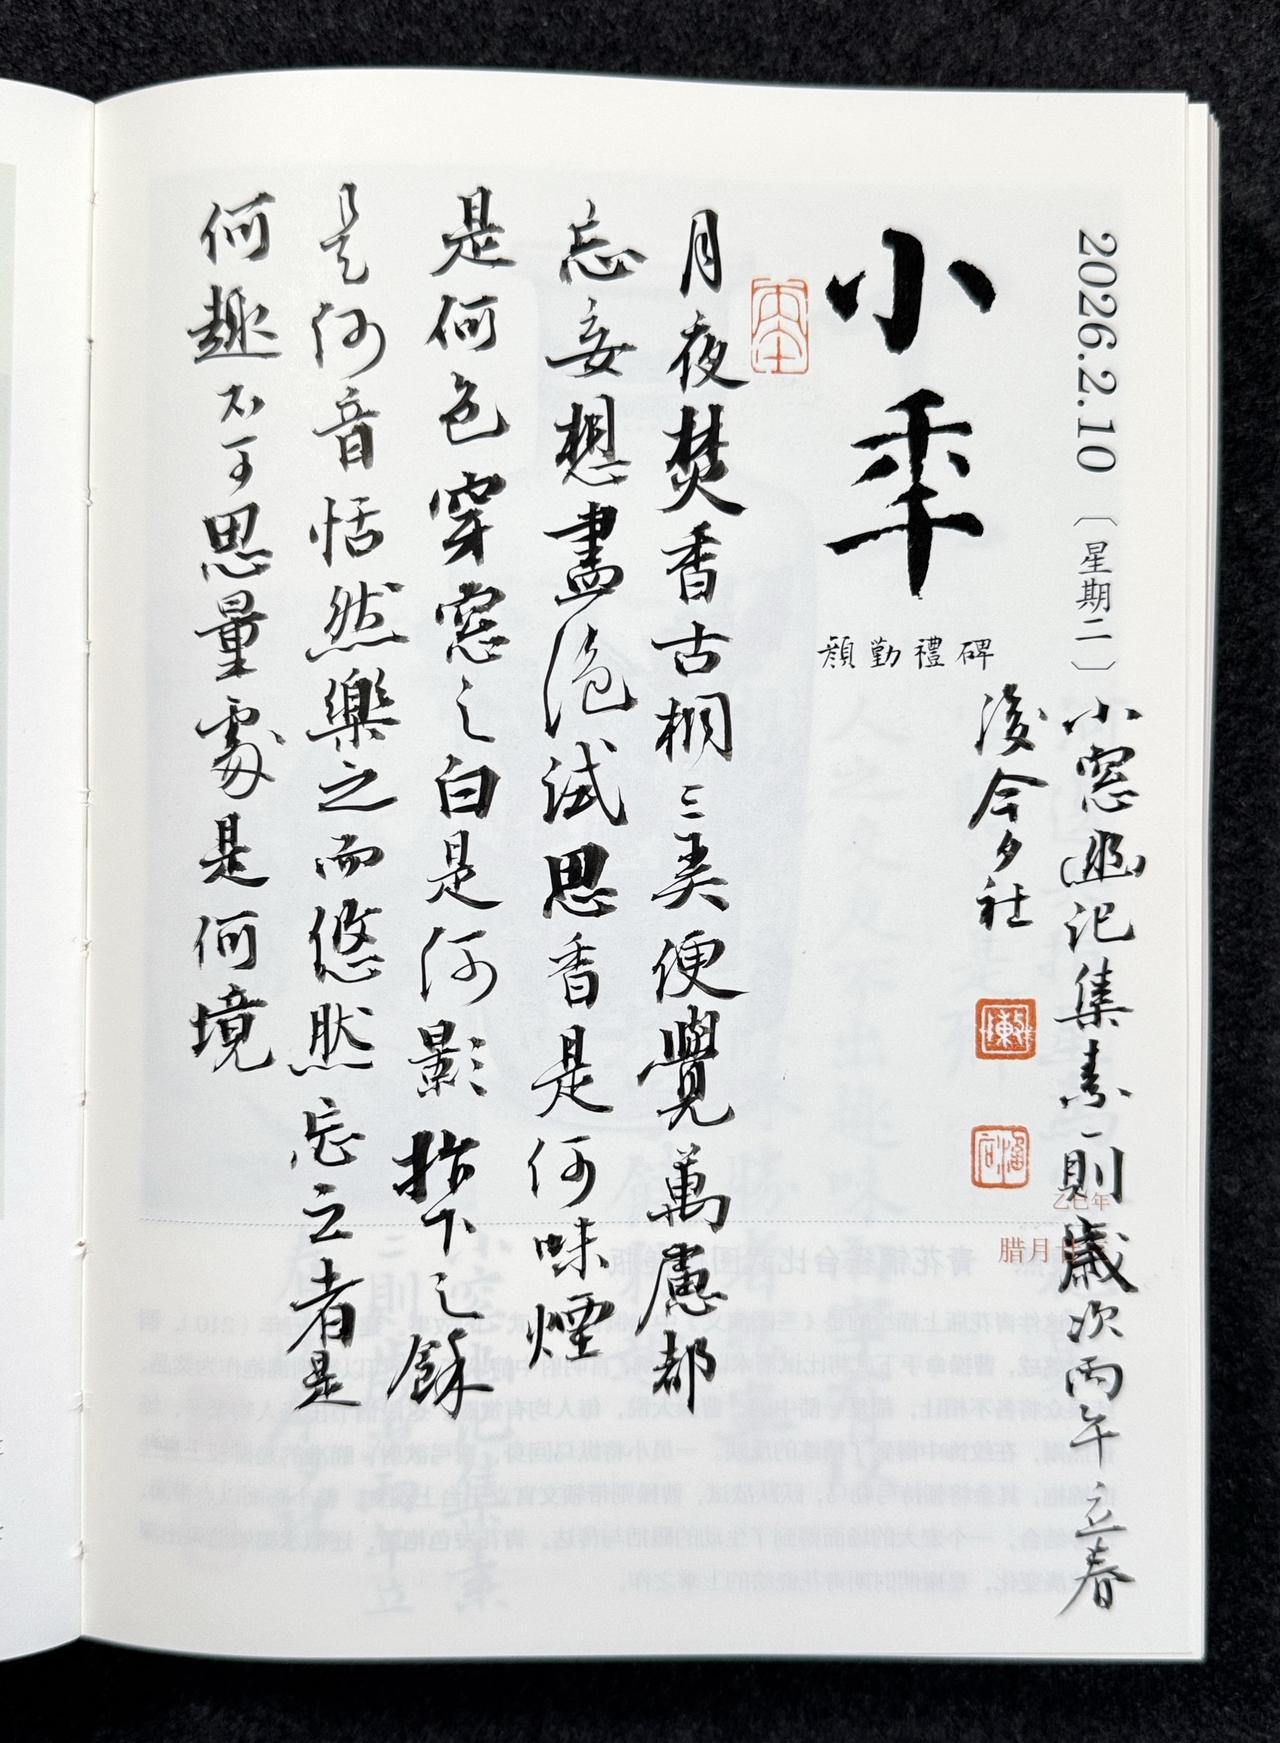 2026.2.10
〔星期二〕
小窓幽记集素一則歲次丙午立春
後今夕社
乙巳年
腊月廿
小年
顏勤禮碑
月夜焚香古桐三弄便覺萬慮都
忘妄想盡絶試思香是何味煙
是何色穿窓之白是何影指下之餘
是何音恬然樂之而悠然忘之者是
何趣不可思量處是何境